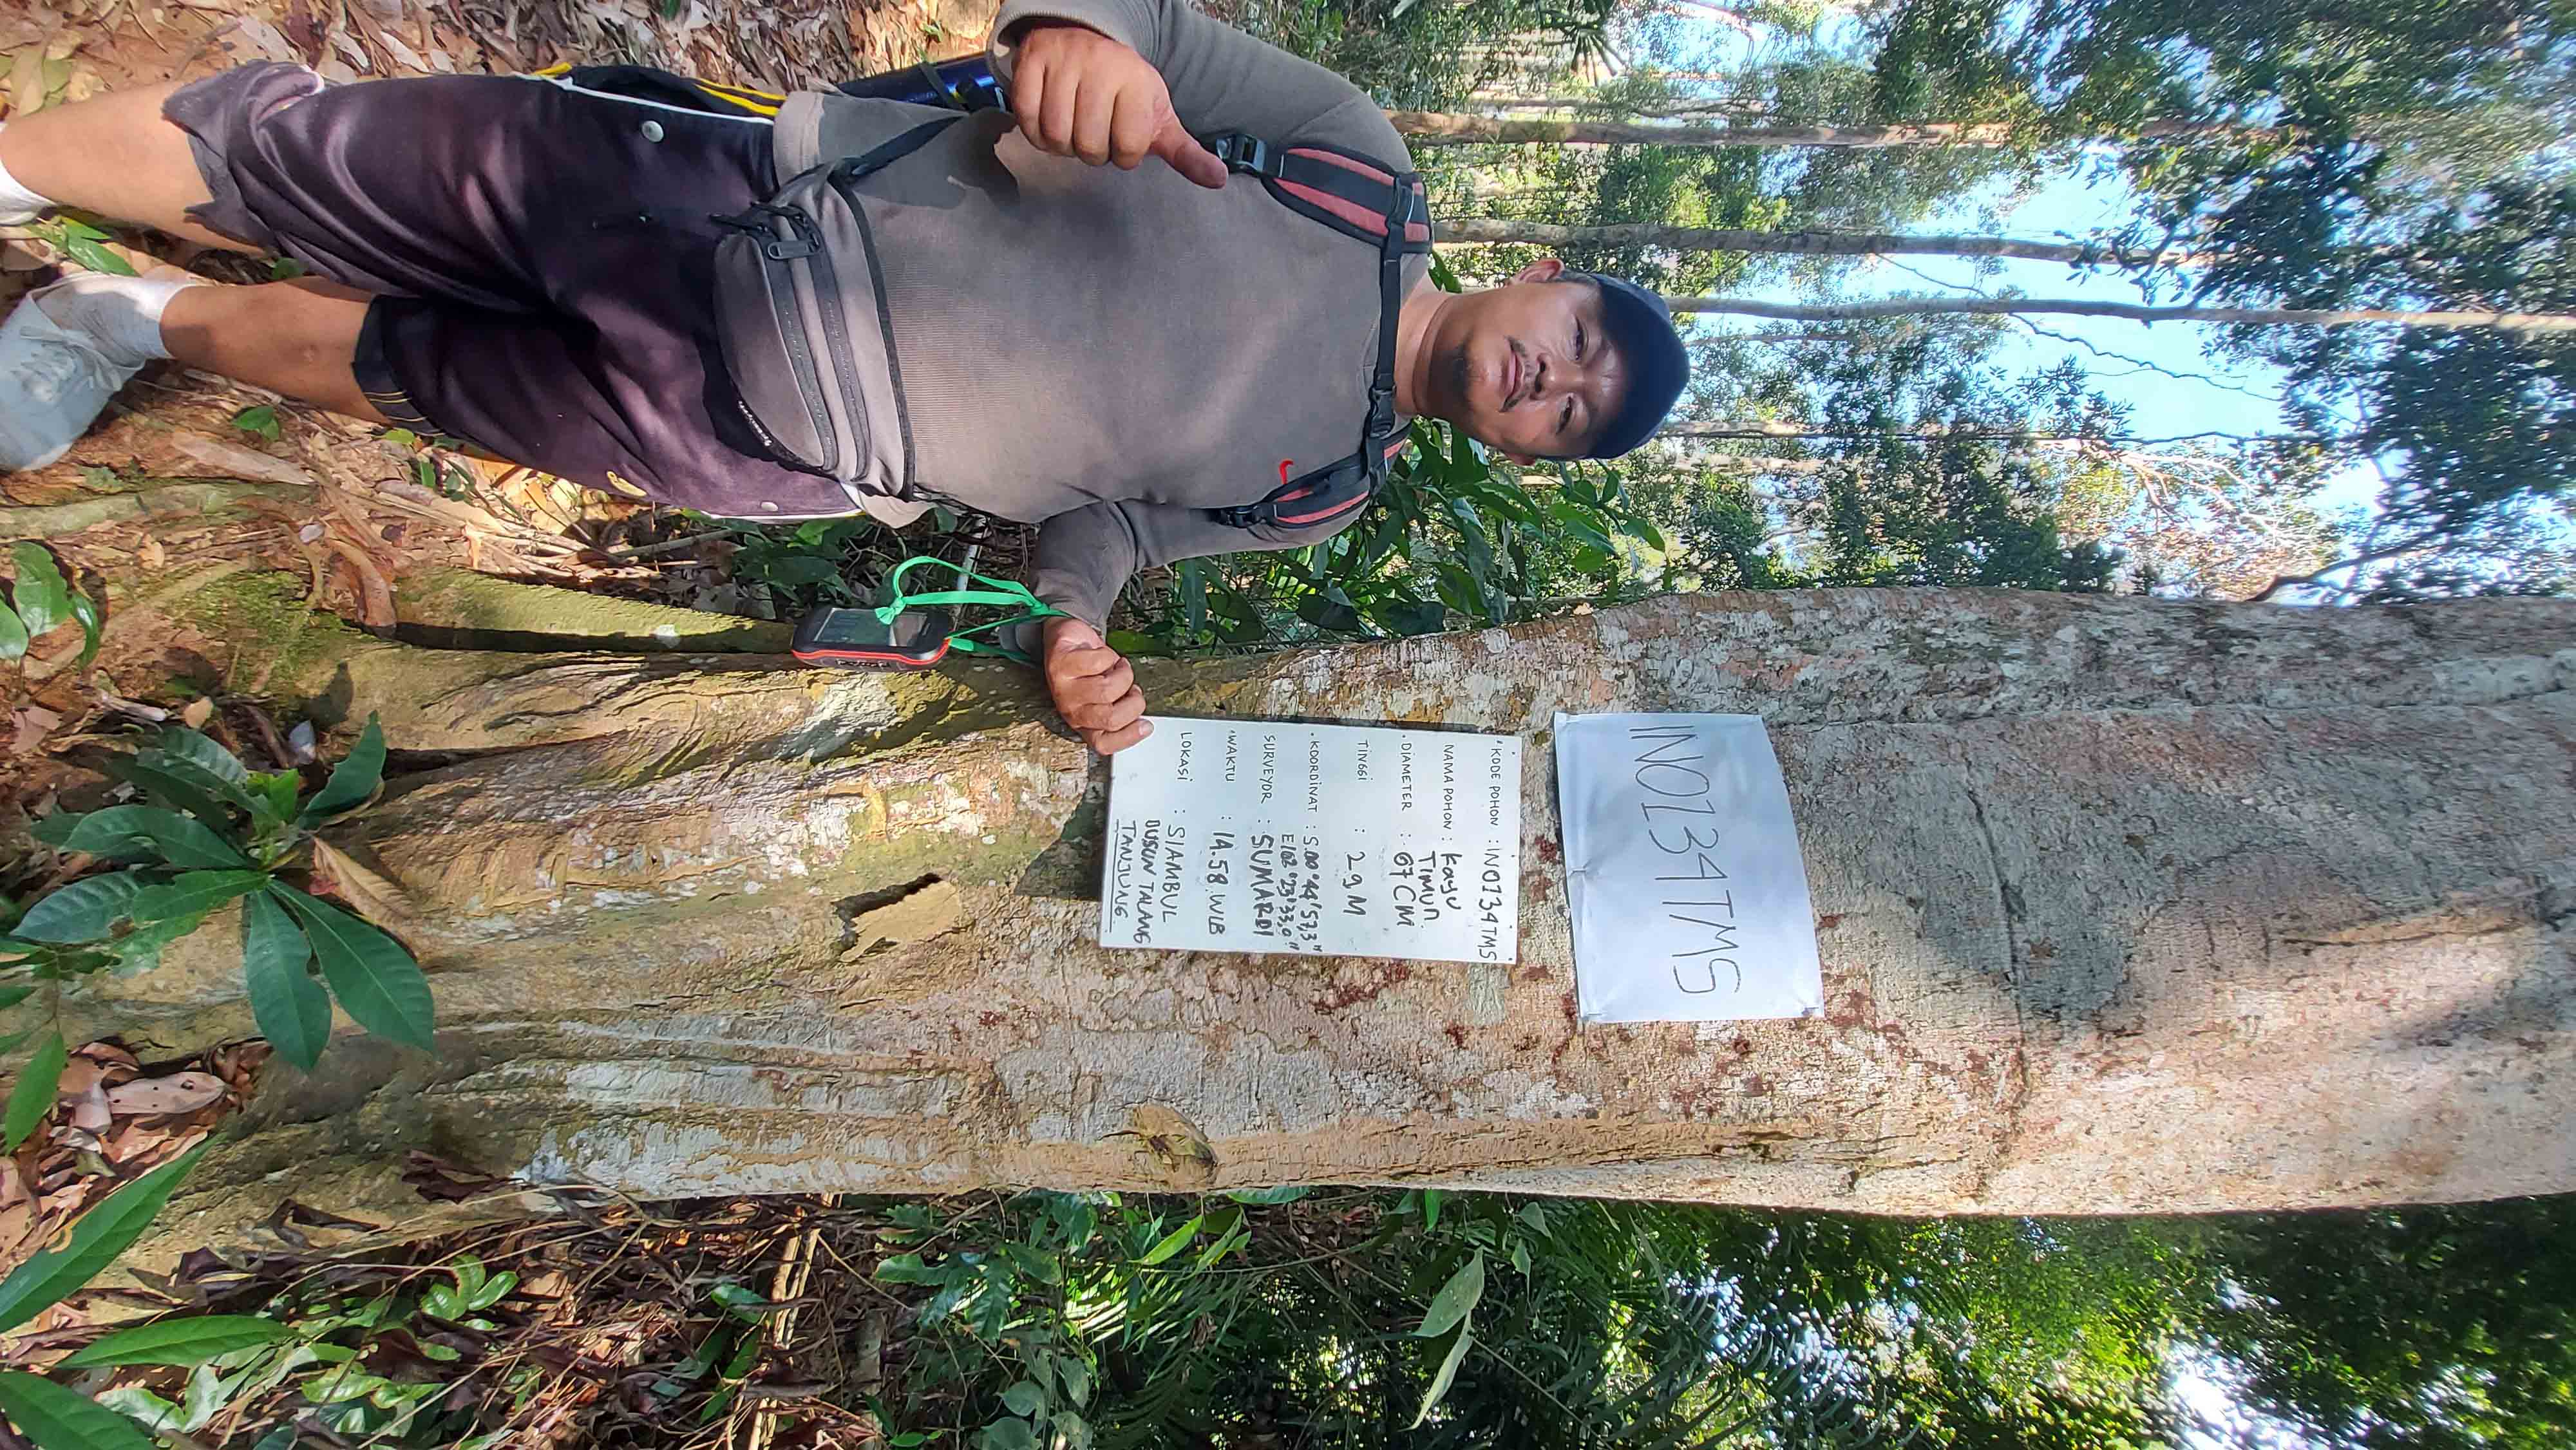 INO134TMS
• KODE POHON : INO134TMS
NAMA POHON : Kayu
Timun
• DIAMETER : 67 CM
TINGGI : 29 M
• KOORDINAT : S.00°44'57,3"
E102°23'33,0"
SURVEYOR : SUMARDI
• WAKTU : 14.58.WIB
LOKASI : SIAMBUL
DUSUN TALANG
TANJUNG